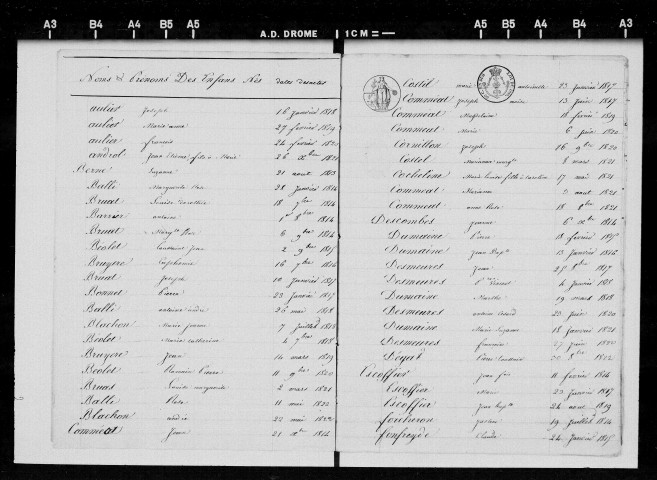 A3 B4 A4 B5 A5 A.D. DROME 1CM A5 B5 A4 B4 A3
Noms & Prénoms Des Enfans Nés dates des actes
aulier Joseph 16 janvier 1818
aulier Marie anne 27 fevrier 1819
aulier francois 24 fevrier 1820
androl Jean 26 xbre 1821
Berne Suzanne 21 aout 1803
Ballé Marguerite 28 janvier 1814
Bruat 18 7bre 1814
Barrier antoine 1er 8bre 1814
Bruat Rose 6 9bre 1814
Beolet Jean 2 9bre 1815
Bruyere 16 7bre 1816
Bruat Joseph 10 janvier 1817
Bonnet Pierre 22 janvier 1817
Ballé antoine andré 26 mai 1818
Blachon Marie jeanne 7 juillet 1818
Beolet Marie catherine 4 7bre 1818
Bruyere Jean 14 mars 1819
Beolet Pierre 11 9bre 1820
Bruas marguerite 2 mars 1821
Ballé Rose 11 mai 1822
Blachon andré 22 mai 1822
Commeat Jean 21 xbre 1814
Costel marie antoinette 23 janvier 1817
Commeat Joseph andré 13 juin 1817
Commeat Magdelaine 11 fevrier 1819
Commeat Marie 6 juin 1820
Cornillon Joseph 16 9bre 1820
Costel Marianne 8 mars 1821
Marie Louise 17 mai 1821
Commeat Mariane 2 aout 1821
Commeat anne Rose 18 8bre 1821
Descombes 6 xbre 1814
Dumaine Pierre 18 fevrier 1815
Dumaine Jean Bapte 13 janvier 1816
Desmeures Jean 25 8bre 1817
Desmeures 4 janvier 1818
Dumaine Marthe 19 mars 1818
Desmeures antoine 23 juin 1820
Dumaine Marie Suzanne 18 janvier 1821
Desmeures 27 juin 1822
Deyal Pierre 20 8bre 1822
Escoffier Jean 11 fevrier 1814
Escoffier 23 janvier 1817
Escoffier Jean Bapte 24 aout 1819
19 juillet 1814
Jonfreyde Claude 24 janvier 1815